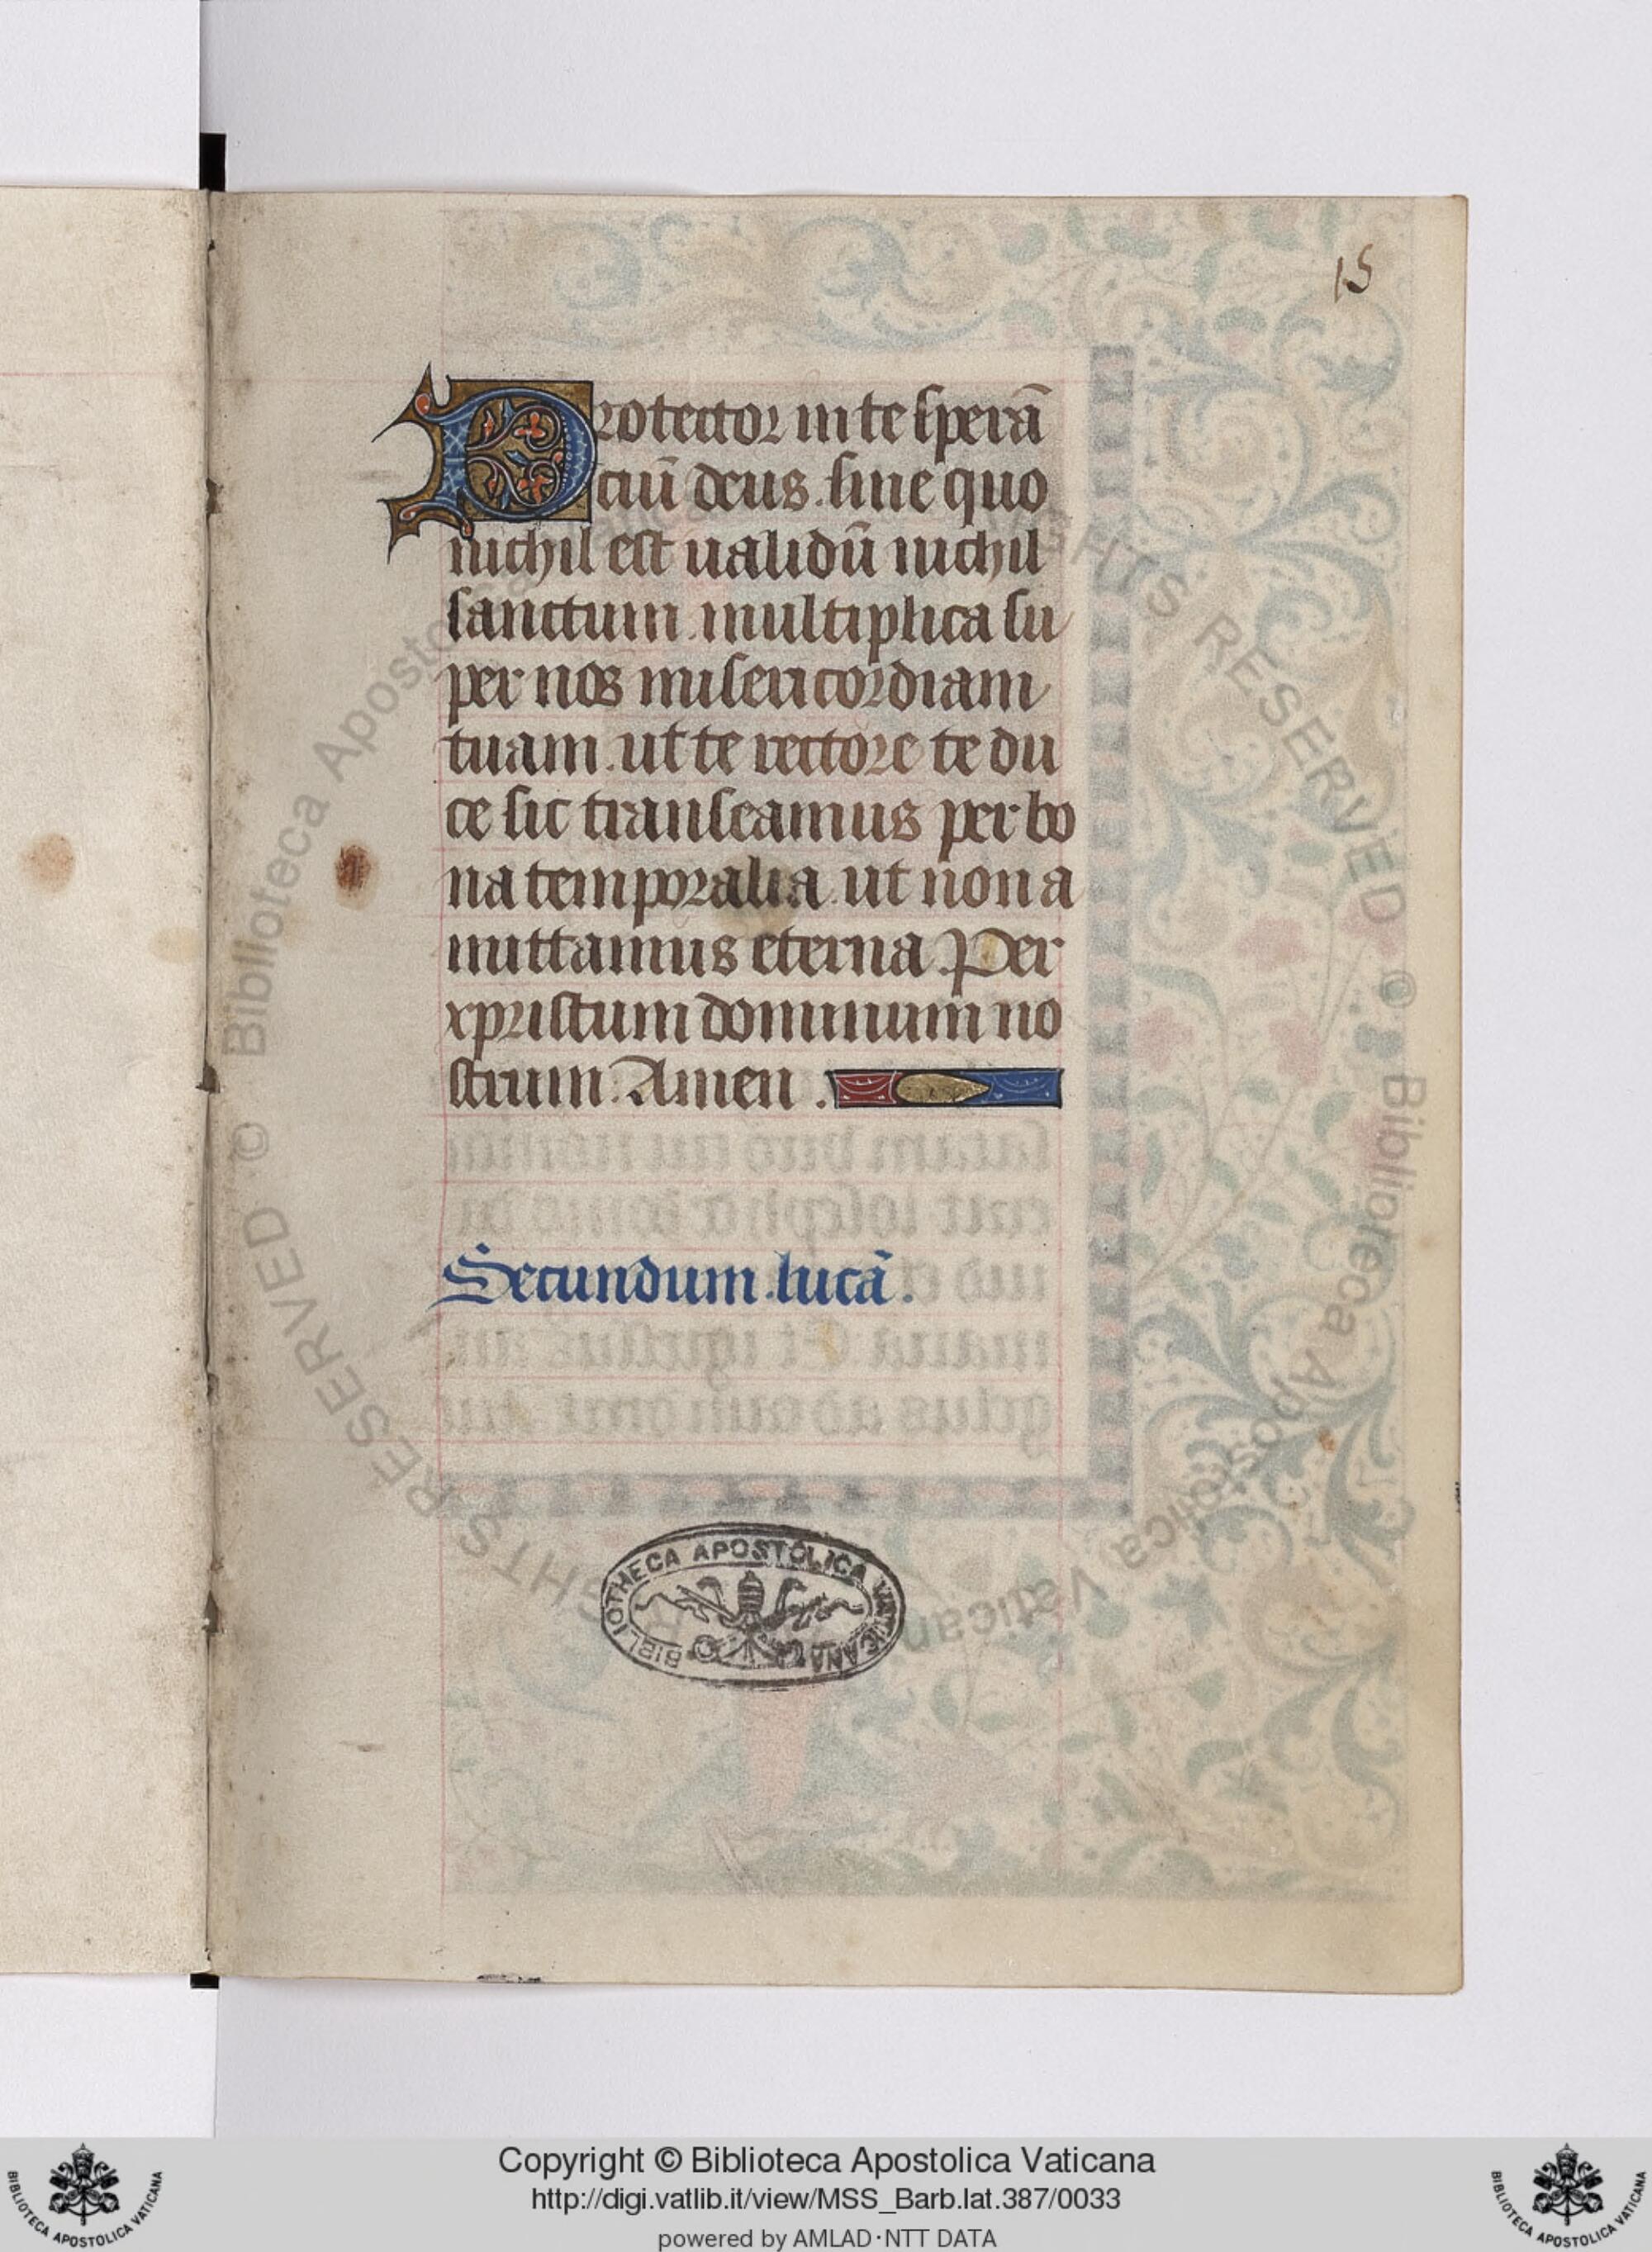 15
Protector in te sperā
ciū deus. sine quo
nichil est ualidū nichil
sanctum. multiplica su
per nos misericordiam
tuam. ut te rectore te du
ce sic transeamus per bo
na temporalia. ut non a
mittamus eterna. Per
xpristum dominum no
strum. Amen.
Secundum. lucā.
BIBLIOTHECA APOSTOLICA VATICANA
© Biblioteca Apostolica Vaticana RIGHTS RESERVED © Biblioteca Apostolica Vaticana RIGHTS RESERVED
Copyright © Biblioteca Apostolica Vaticana
http://digi.vatlib.it/view/MSS_Barb.lat.387/0033
powered by AMLAD·NTT DATA
BIBLIOTECA APOSTOLICA VATICANA
BIBLIOTECA APOSTOLICA VATICANA